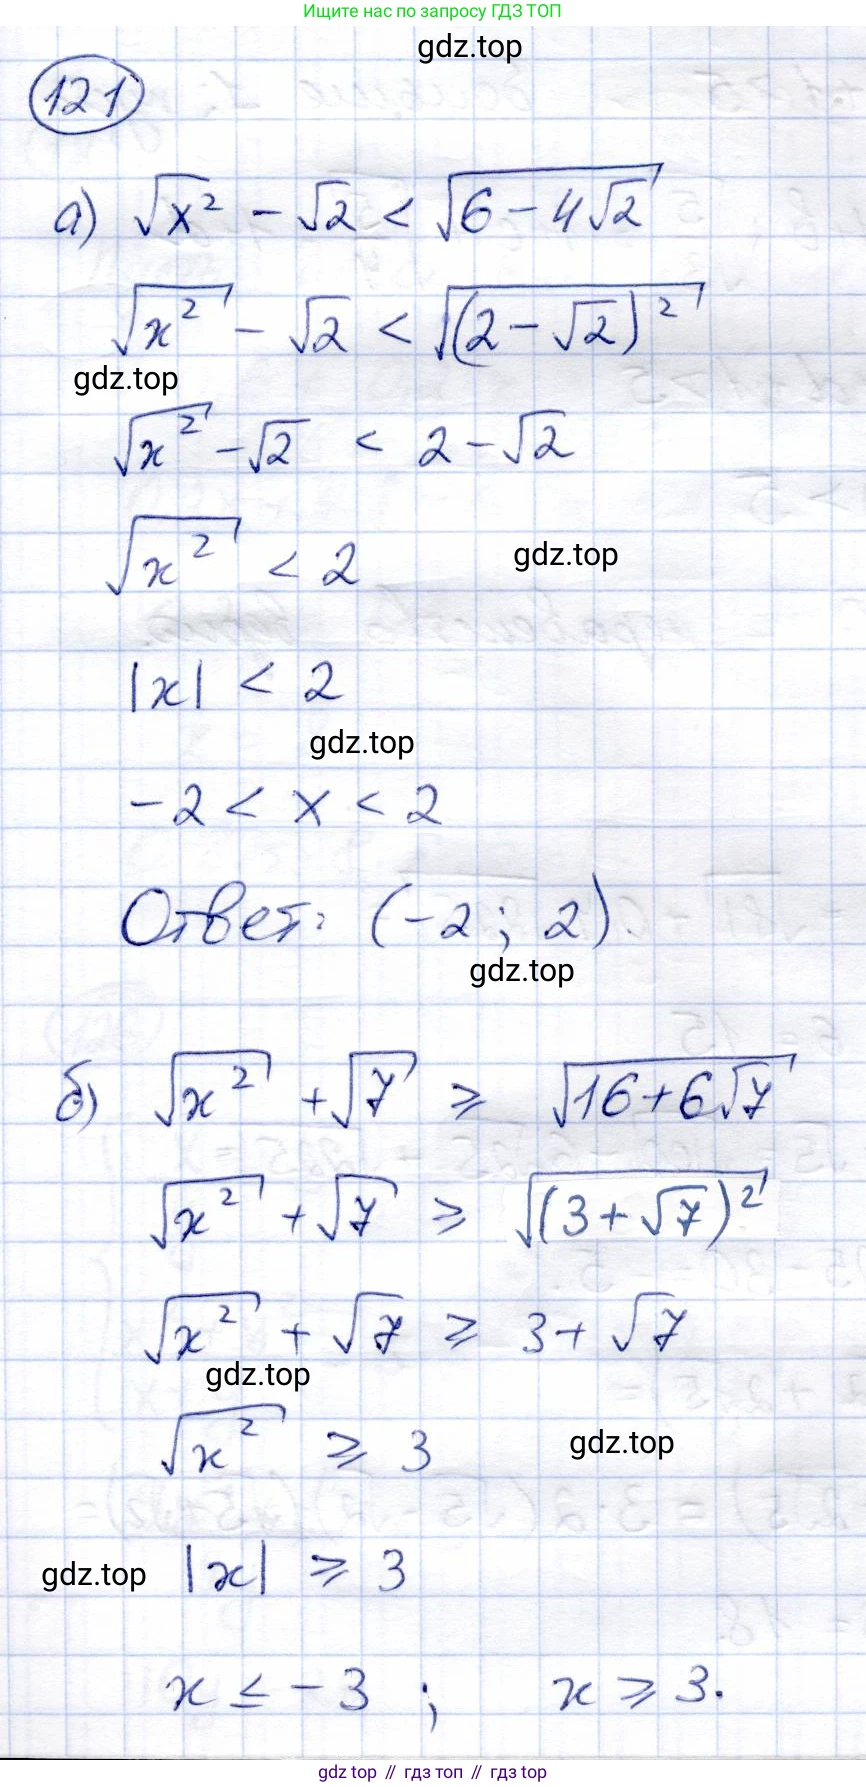 Ищите нас по запросу ГДЗ ТОП
gdz.top
121
а) √x² - √2 < √(6 - 4√2)
√x² - √2 < √(2 - √2)²
gdz.top
√x² - √2 < 2 - √2
√x² < 2
gdz.top
|x| < 2
gdz.top
-2 < x < 2
Ответ: (-2; 2).
gdz.top
б) √x² + √7 ⩾ √(16 + 6√7)
√x² + √7 ⩾ √(3 + √7)²
√x² + √7 ⩾ 3 + √7
gdz.top
√x² ⩾ 3
gdz.top
gdz.top
|x| ⩾ 3
x ≤ -3 ; x ⩾ 3.
gdz.top // гдз топ // gdz.top